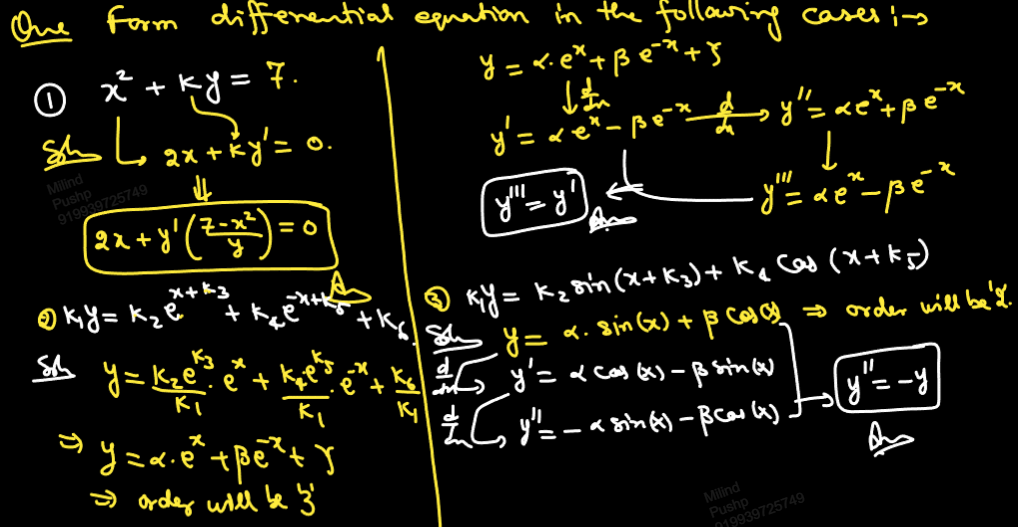 Que Form differential equation in the following cases :→
① x² + ky = 7.
Soln 2x + ky' = 0.
⇓
2x + y' ((7-x²)/y) = 0
Ans
② k₁y = k₂e^(x+k₃) + k₄e^(-x+k₅) + k₆.
Soln y = (k₂e^(k₃))/k₁ · e^x + (k₄e^(k₅))/k₁ · e^(-x) + k₆/k₁
⇒ y = α·e^x + βe^(-x) + γ
⇒ order will be '3'
y = α·e^x + βe^(-x) + γ
↓ d/dx
y' = αe^x - βe^(-x) d/dx → y'' = αe^x + βe^(-x)
↓
y''' = αe^x - βe^(-x)
y''' = y'
Ans
③ k₁y = k₂ sin(x+k₃) + k₄ cos(x+k₅)
Soln y = α. sin(x) + β cos(x) ⇒ order will be '2'.
d/dx → y' = α cos(x) - β sin(x)
d/dx → y'' = - α sin(x) - β cos(x) → y'' = -y
Ans
Milind
Pushp
919939725749
Milind
Pushp
919939725749